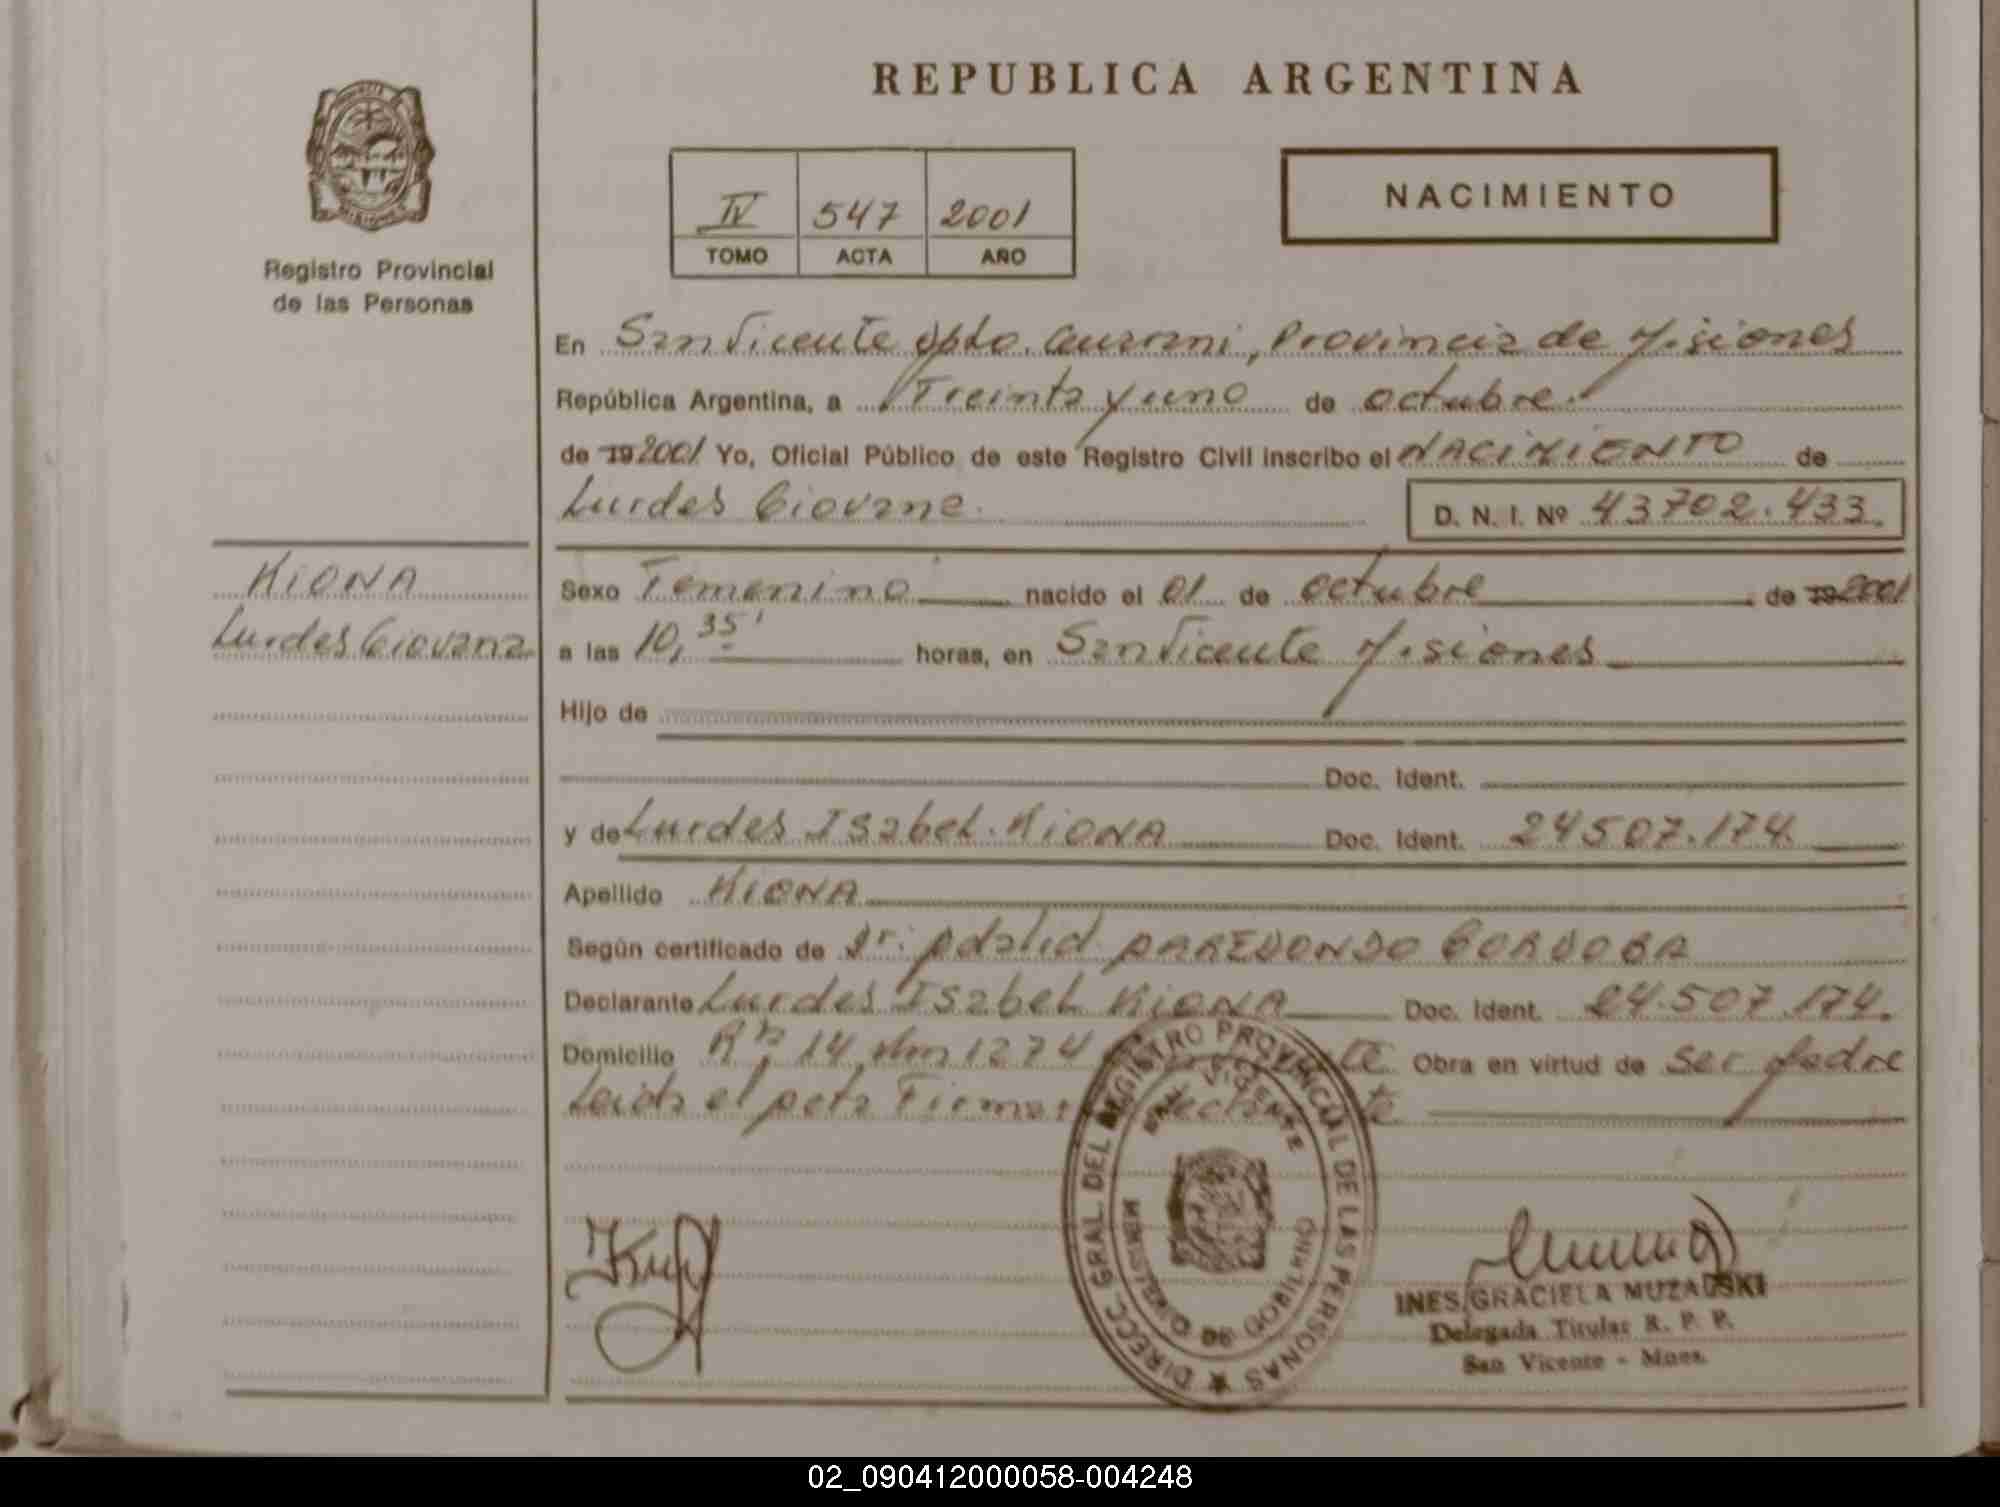 REPUBLICA ARGENTINA
NACIMIENTO
IV 547 2001
TOMO ACTA AÑO
Registro Provincial
de las Personas
En San Vicente Dpto. Guarani, Provincia de Misiones
República Argentina, a Treinta y uno de octubre.
de 19 2001 Yo, Oficial Público de este Registro Civil inscribo el NACIMIENTO de
Lurdes Giovana.
D. N. I. Nº 43702.433.
KIONA
Lurdes Giovana
Sexo Femenino nacido el 01 de octubre de 19 2001
a las 10,35' horas, en San Vicente Misiones
Hijo de
Doc. Ident.
y de Lurdes Isabel KIONA Doc. Ident. 24507.174.
Apellido KIONA
Según certificado de Dr: Adalid ARREDONDO CORDOBA
Declarante Lurdes Isabel KIONA Doc. Ident. 24.507.174.
Domicilio Rta 14 Km 1274 Obra en virtud de ser Madre
Leida el Acta Firma
DIRECC. GRAL. DEL REGISTRO PROVINCIAL DE LAS PERSONAS
SAN VICENTE
MINISTERIO DE GOBIERNO
INES GRACIELA MUZALSKI
Delegada Titular R. P. P.
San Vicente - Mnes.
02_090412000058-004248